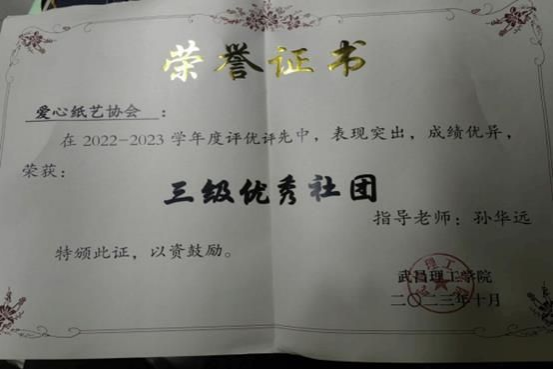 荣誉证书
爱心纸艺协会：
在2022-2023学年度评优评先中，表现突出，成绩优异，
荣获：
三级优秀社团
指导老师：孙华远
特颁此证，以资鼓励。
武昌理工学院
二〇二三年十月